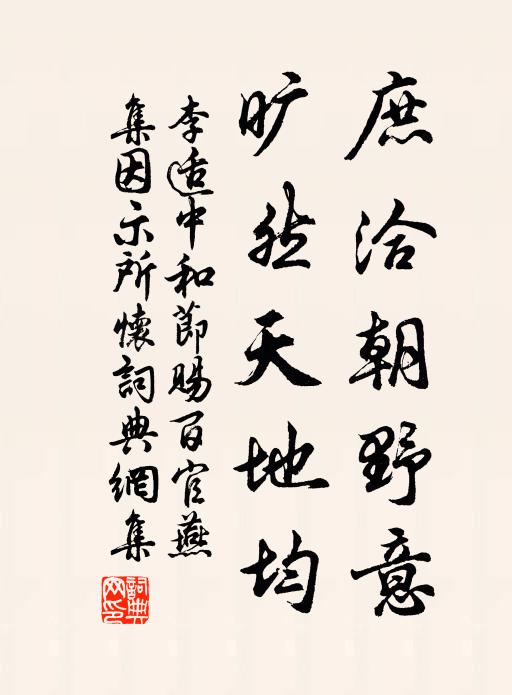 庶洽朝野意
旷然天地均
李适中和節賜百官燕
集因示所懷詞典網集
詞典
网印